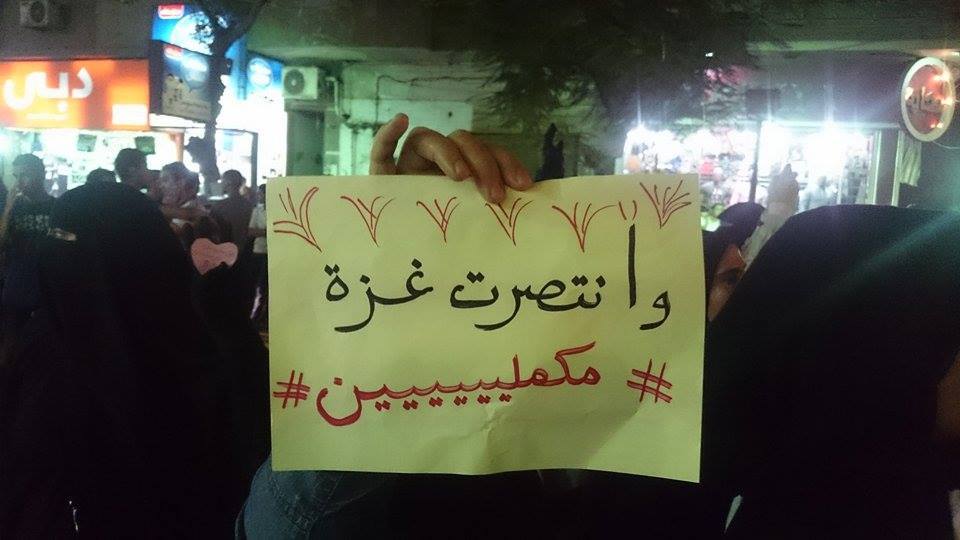 دبي
وأنتصرت غزة
#مكمليييييين#